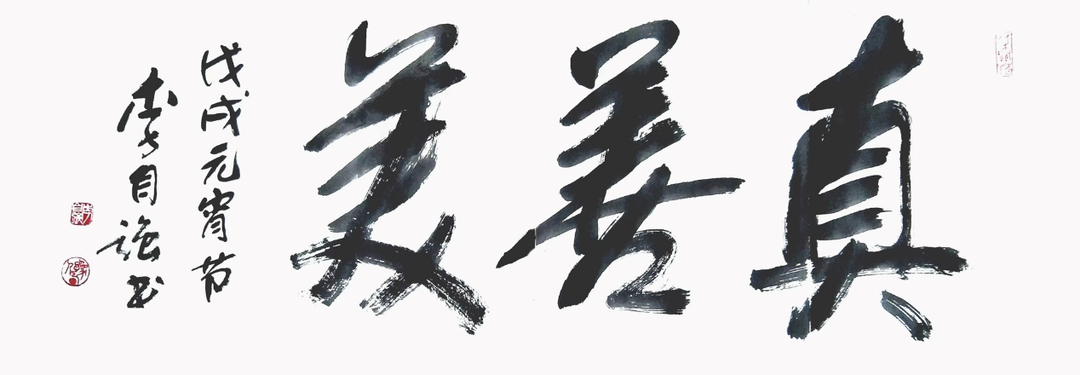 真善美
戊戌元宵节
李自强书